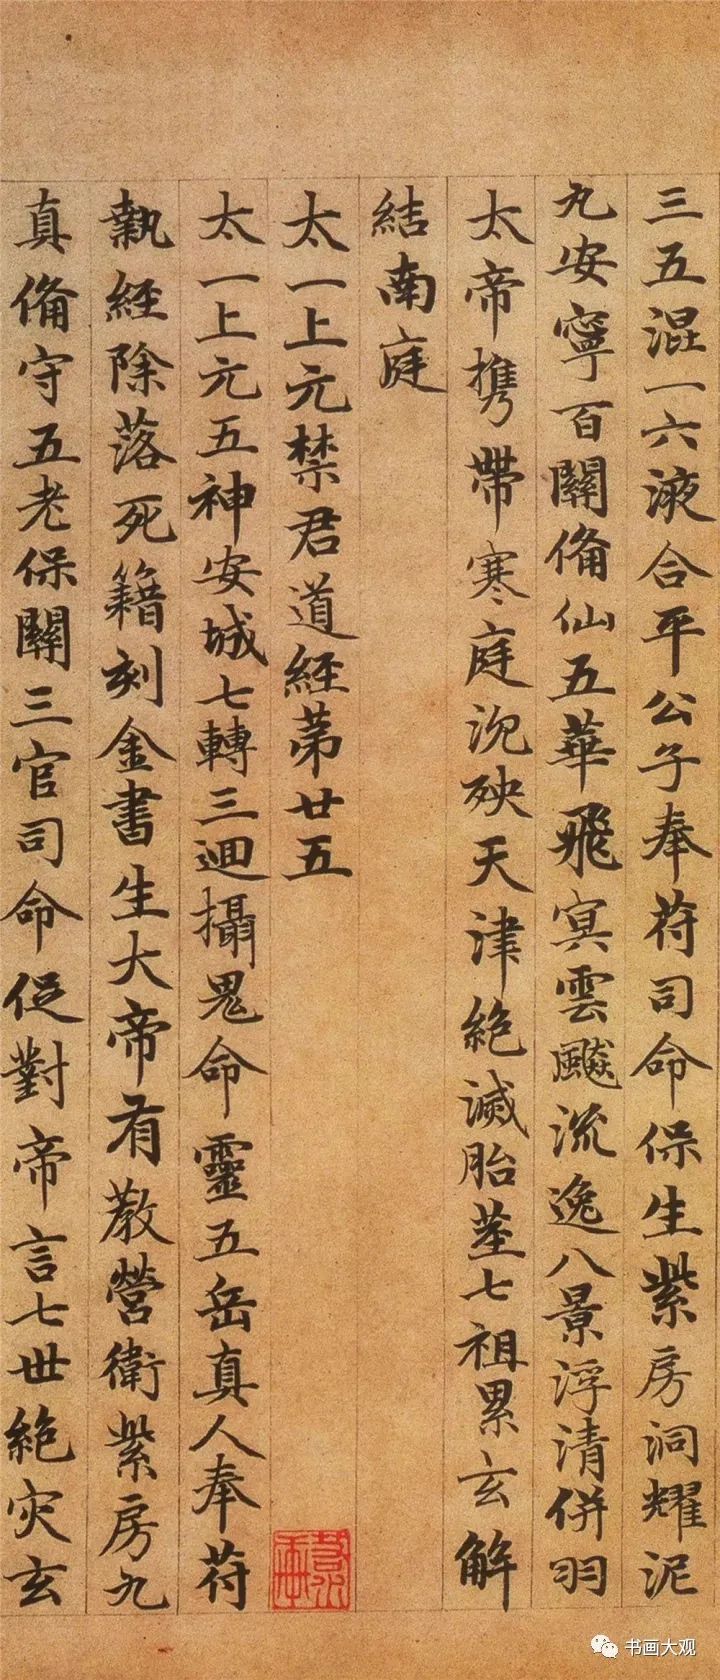 三五混一六液合平公子奉苻司命保生紫房洞耀泥
九安寧百關俻仙五華飛冥雲飈流逸八景浮清併羽
太帝携帶寒庭沉殃天津絶滅胎莖七祖累玄解
結南庭
太一上元禁君道經苐廿五
太一上元五神安城七轉三迴攝鬼命靈五岳真人奉苻
執經除落死籍刻金書生大帝有教營衛紫房九
真俻守五老保關三官司命促對帝言七世絶灾玄
书画大观